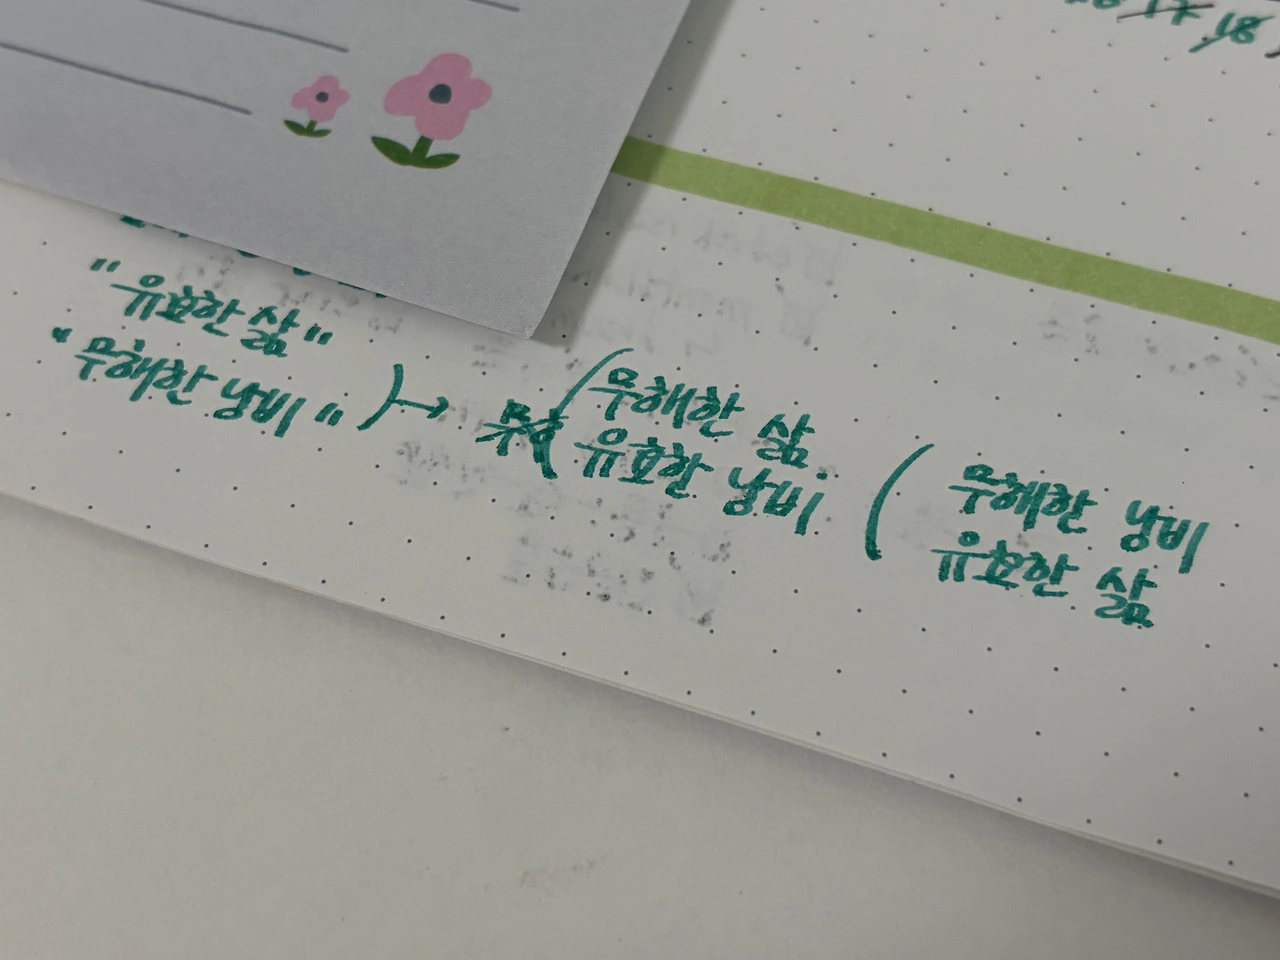 17 18
"유효한 삶"
"무해한 낭비" ) →
( 무해한 삶
유효한 낭비
( 무해한 낭비
유효한 삶